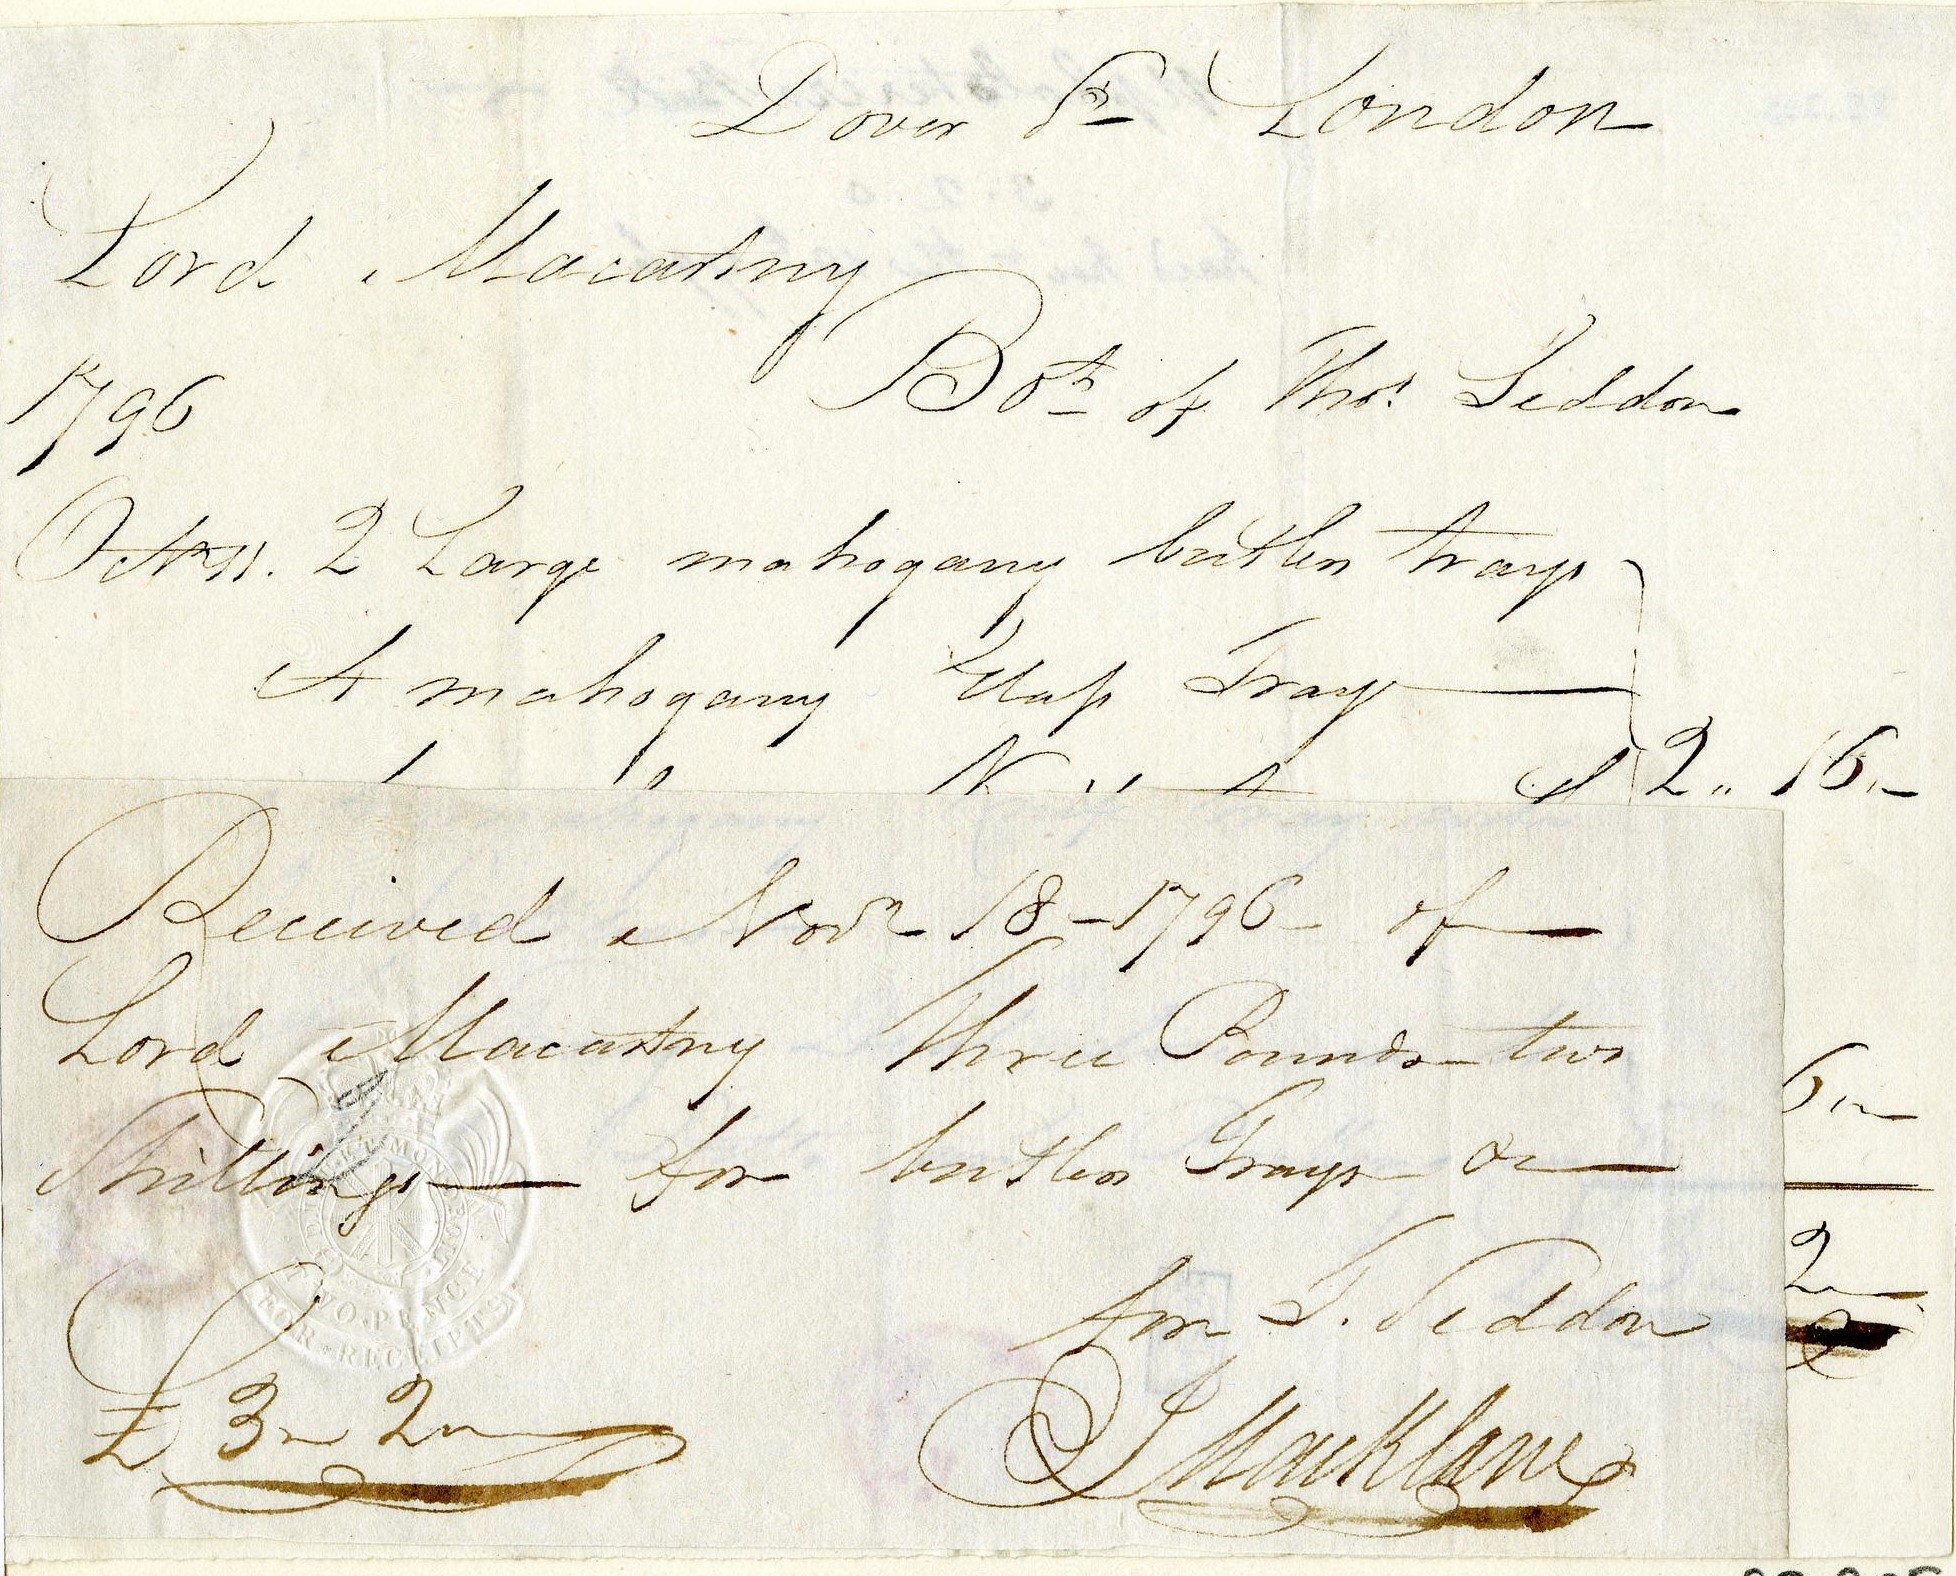 Dover St London
Lord Macartny
Bot of Thos Seddon
1796
Octr 11. 2 Large mahogany butler trays
A mahogany Flap Tray
2 " 16 "
Received Novr 18 - 1796 - of
Lord Macartny Three Pounds two
Shillings for butlers Trays &c
6 "
2
TWO PENCE
FOR RECEIPTS
for T. Seddon
£ 3 " 2 "
J Macklane